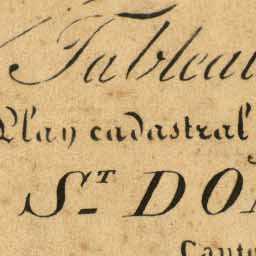 Tableau
Plan cadastral
ST. DO
Canto